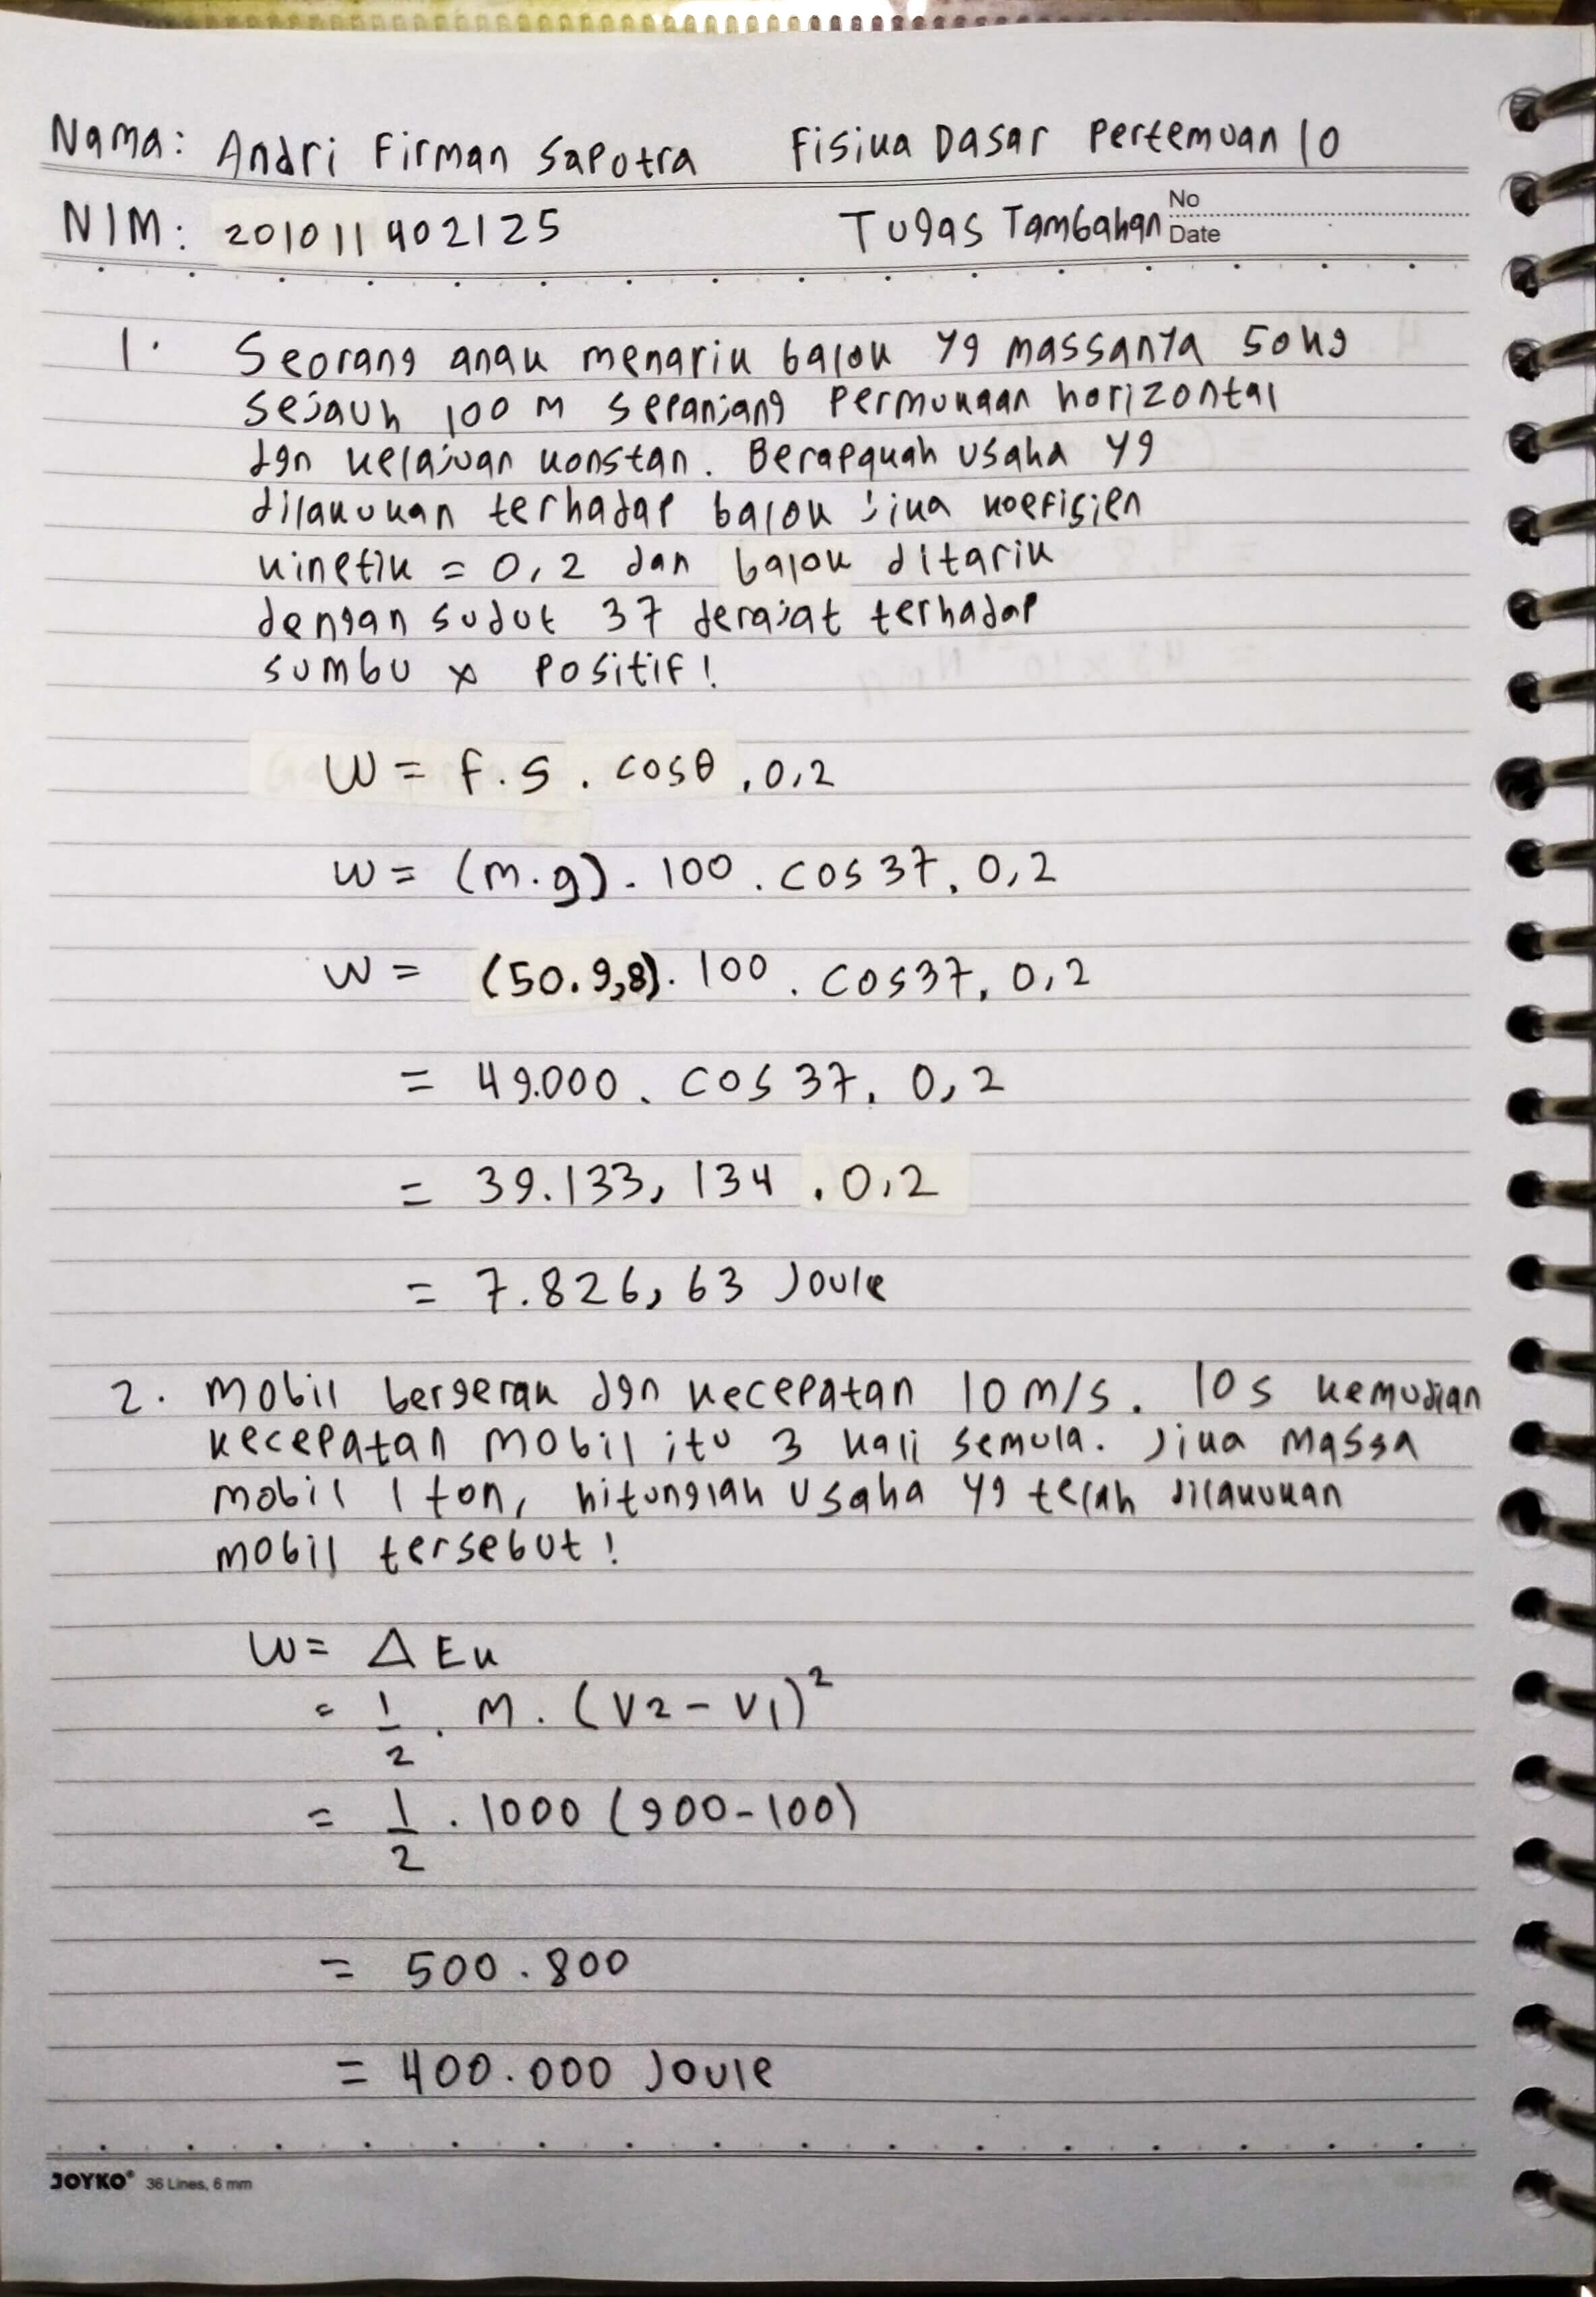 Nama: Andri Firman Saputra Fisika Dasar Pertemuan 10
NIM: 201011402125 Tugas Tambahan No
Date
1. Seorang anak menarik balok yg massanya 50kg
sejauh 100 m sepanjang permukaan horizontal
dgn kelajuan konstan. Berapakah usaha yg
dilakukan terhadap balok jika koefisien
kinetik = 0,2 dan balok ditarik
dengan sudut 37 derajat terhadap
sumbu x positif!
W = F . s . cosθ . 0,2
W = (m.g) . 100 . cos 37 . 0,2
W = (50.9,8) . 100 . cos37 . 0,2
= 49.000 . cos 37 . 0,2
= 39.133,134 . 0,2
= 7.826,63 Joule
2. Mobil bergerak dgn kecepatan 10 m/s. 10s kemudian
kecepatan mobil itu 3 kali semula. Jika massa
mobil 1 ton, hitunglah usaha yg telah dilakukan
mobil tersebut!
W = Δ Ek
= 1/2 . m . (V2 - V1)²
= 1/2 . 1000 (900-100)
= 500 . 800
= 400.000 Joule
JOYKO® 36 Lines, 6 mm